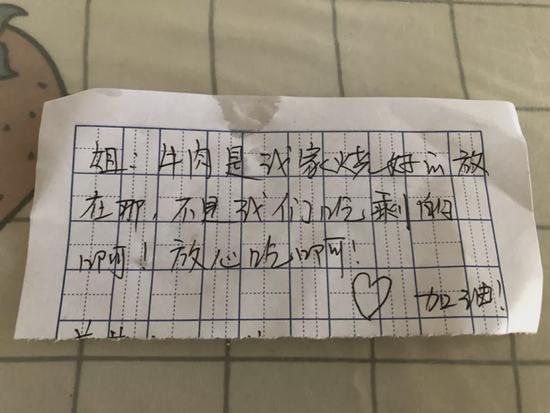 姐：牛肉是我家烧好的放
在那，不是我们吃剩的
啊！放心吃啊！
♡ 加油！